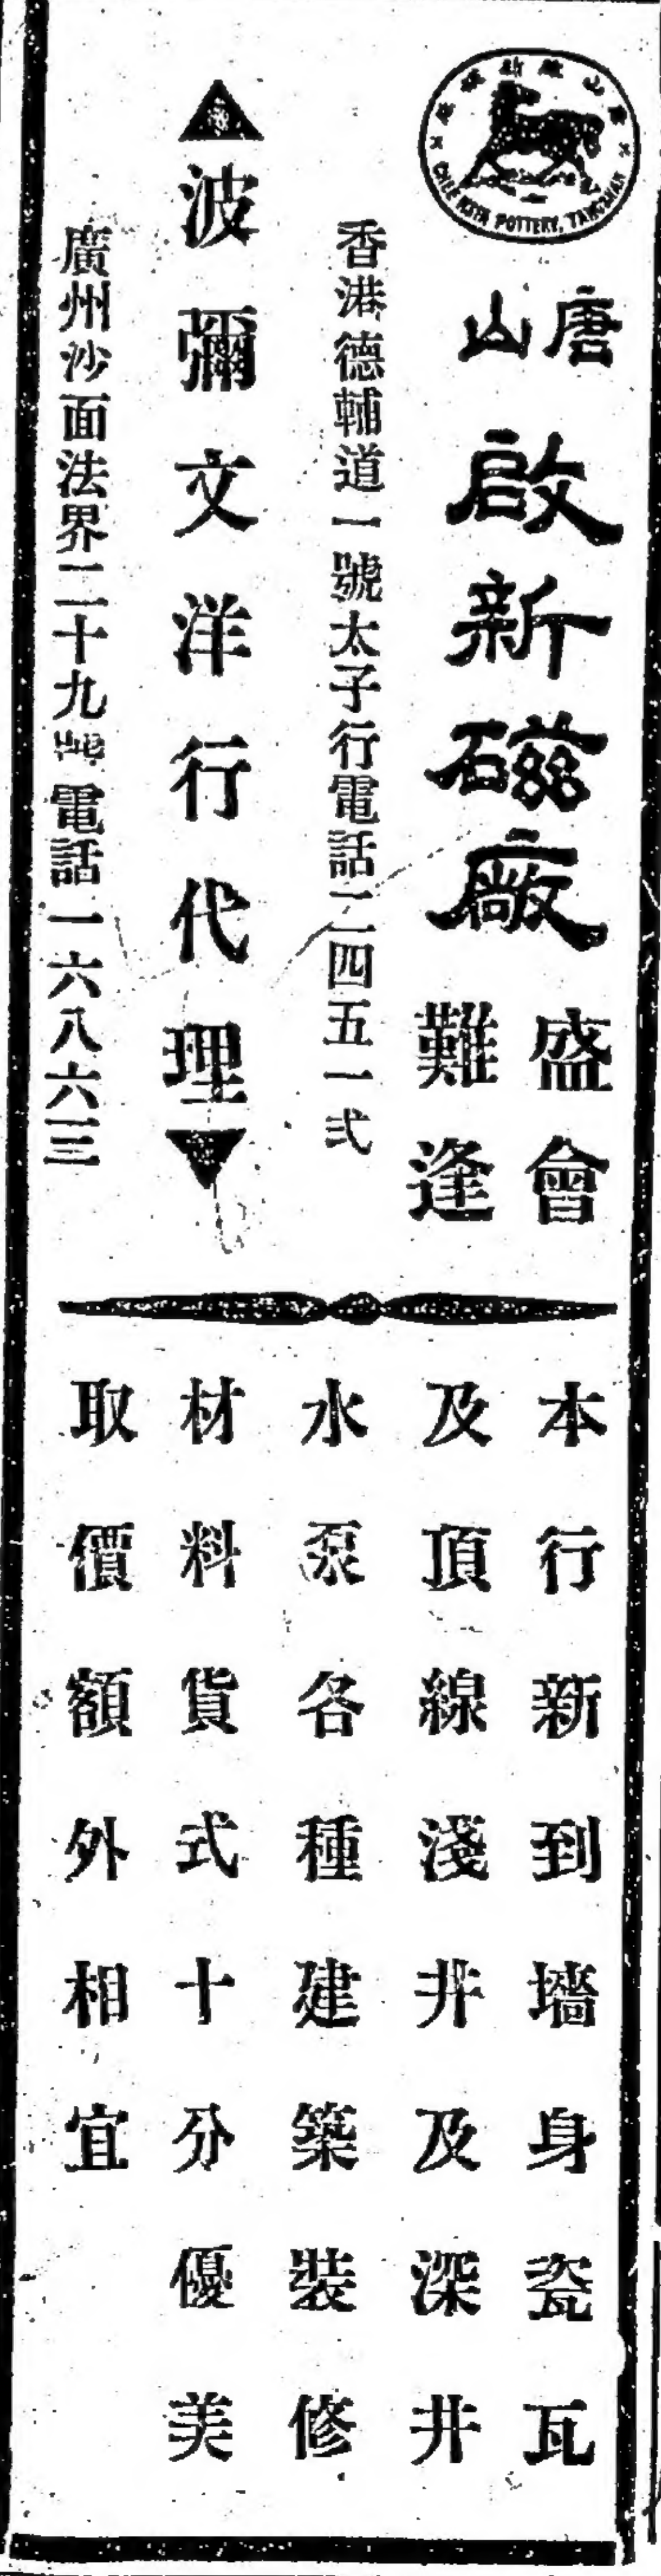 唐山啟新磁廠
CHEE HSIN POTTERY, TANGSHAN
唐山
啟新磁廠
盛會
難逢
香港德輔道一號太子行電話二四五一弍
波彌文洋行代理
廣州沙面法界二十九號電話一六八六三
本行新到墻身瓷瓦
及頂線淺井及深井
水泵各種建築裝修
材料貨式十分優美
取價額外相宜